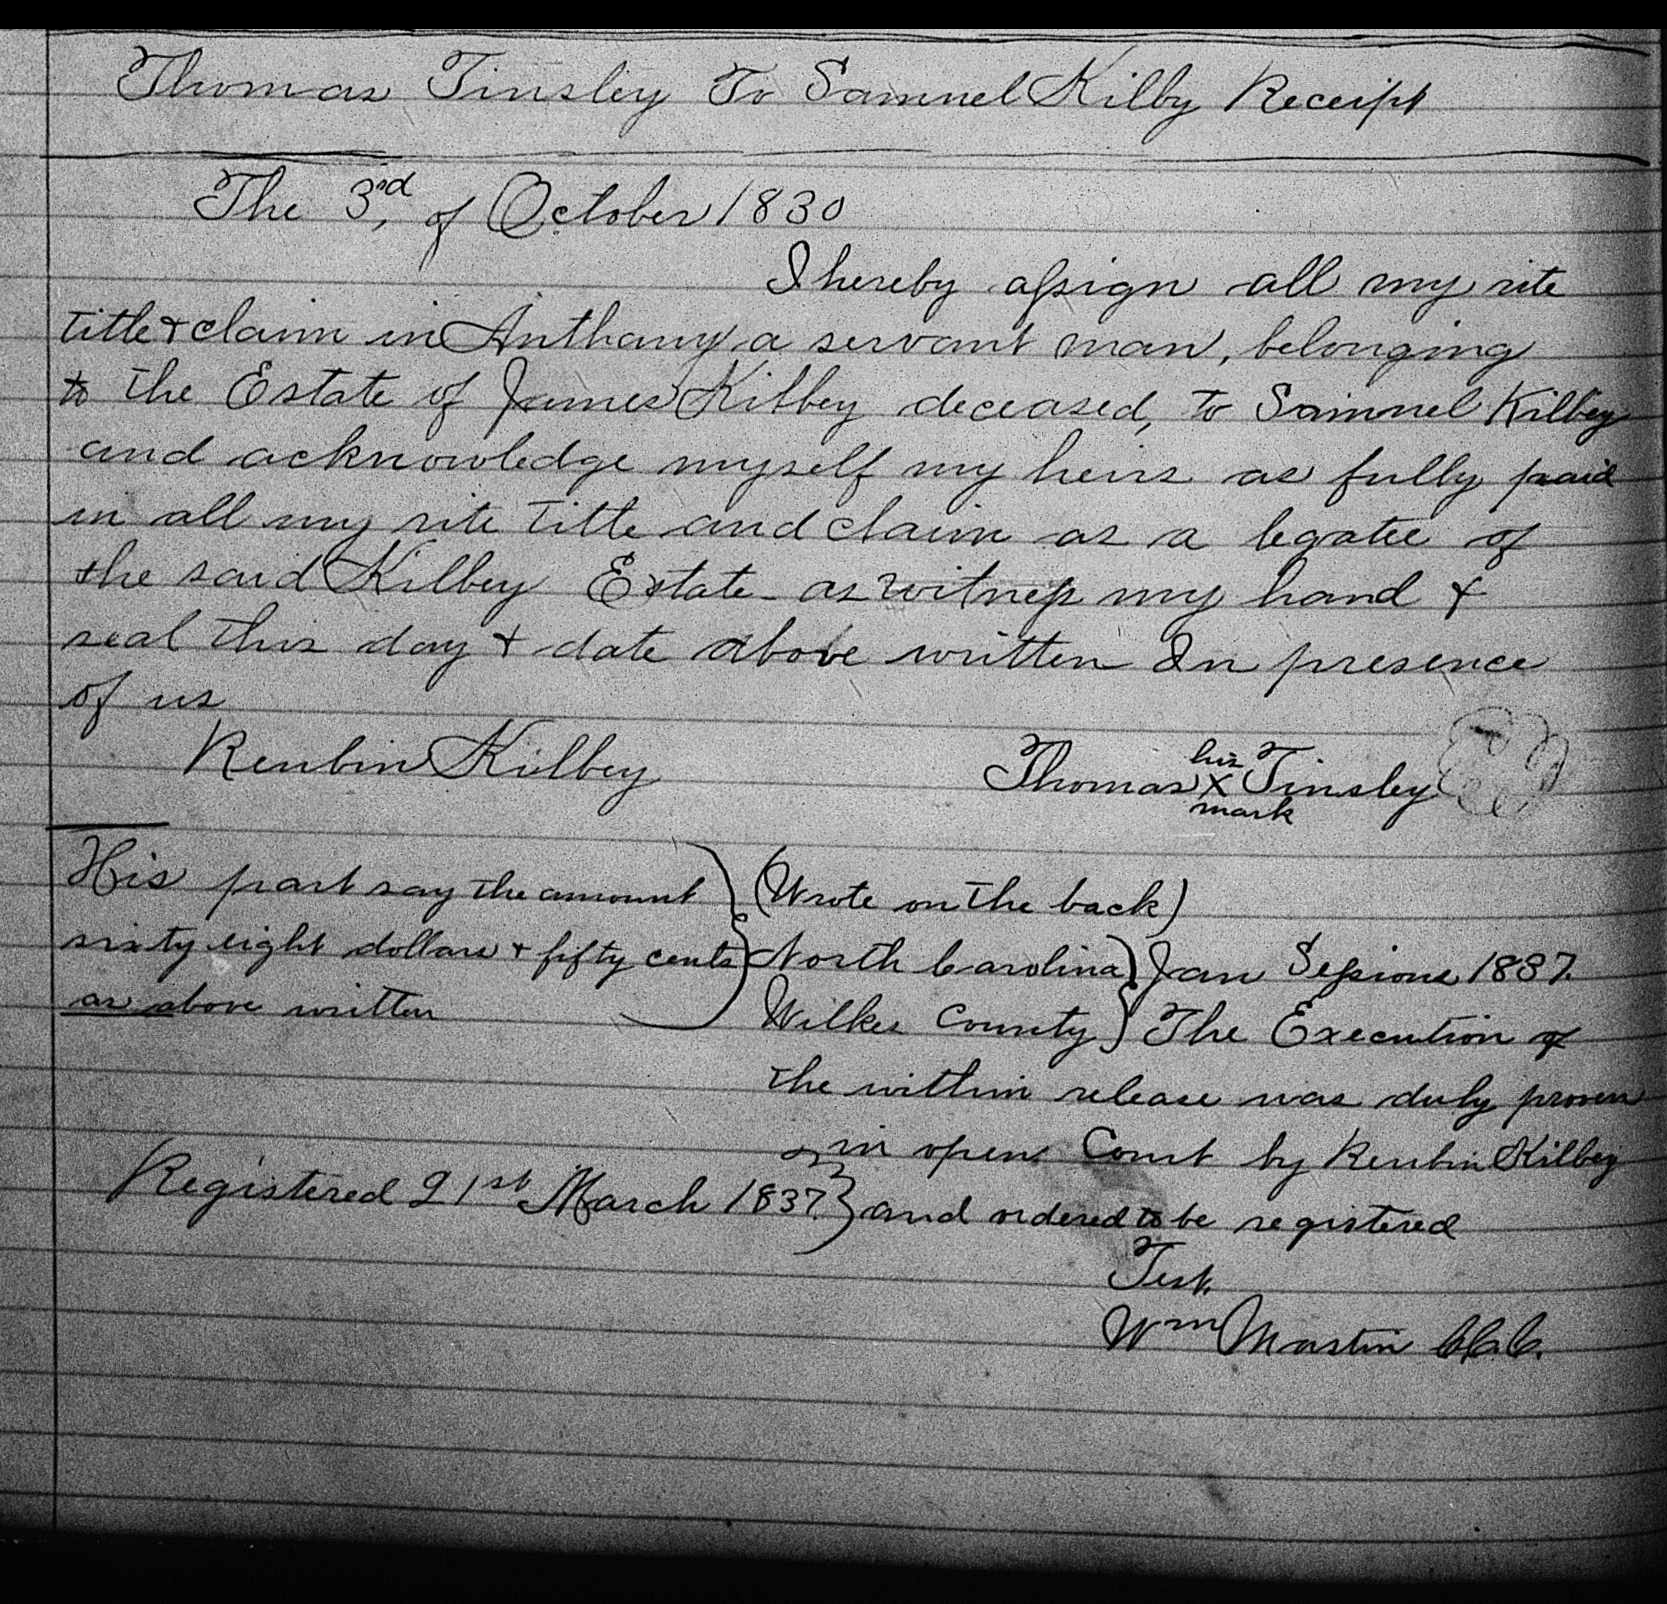 Thomas Tinsley To Samuel Kilby Receipt
The 3rd, of October 1830
I hereby assign all my rite
title & claim in Anthany a servant man, belonging
to the Estate of James Kilbey deceased, to Samuel Kilbey
and acknowledge myself my heirs as fully paid
in all my rite title and claim as a legatee of
the said Kilbey Estate as witness my hand &
seal this day & date above written In presence
of us
Reubin Kilbey
Thomas his X mark Tinsley
His part say the amount
sixty eight dollars & fifty cents
as above written
(Wrote on the back)
North Carolina } Jan Sessions 1837.
Wilkes County } The Execution of
the within release was duly proven
in open Court by Reubin Kilbey
and ordered to be registered
Registered 21st March 1837 }
Test.
Wm Mastin C.C.C.